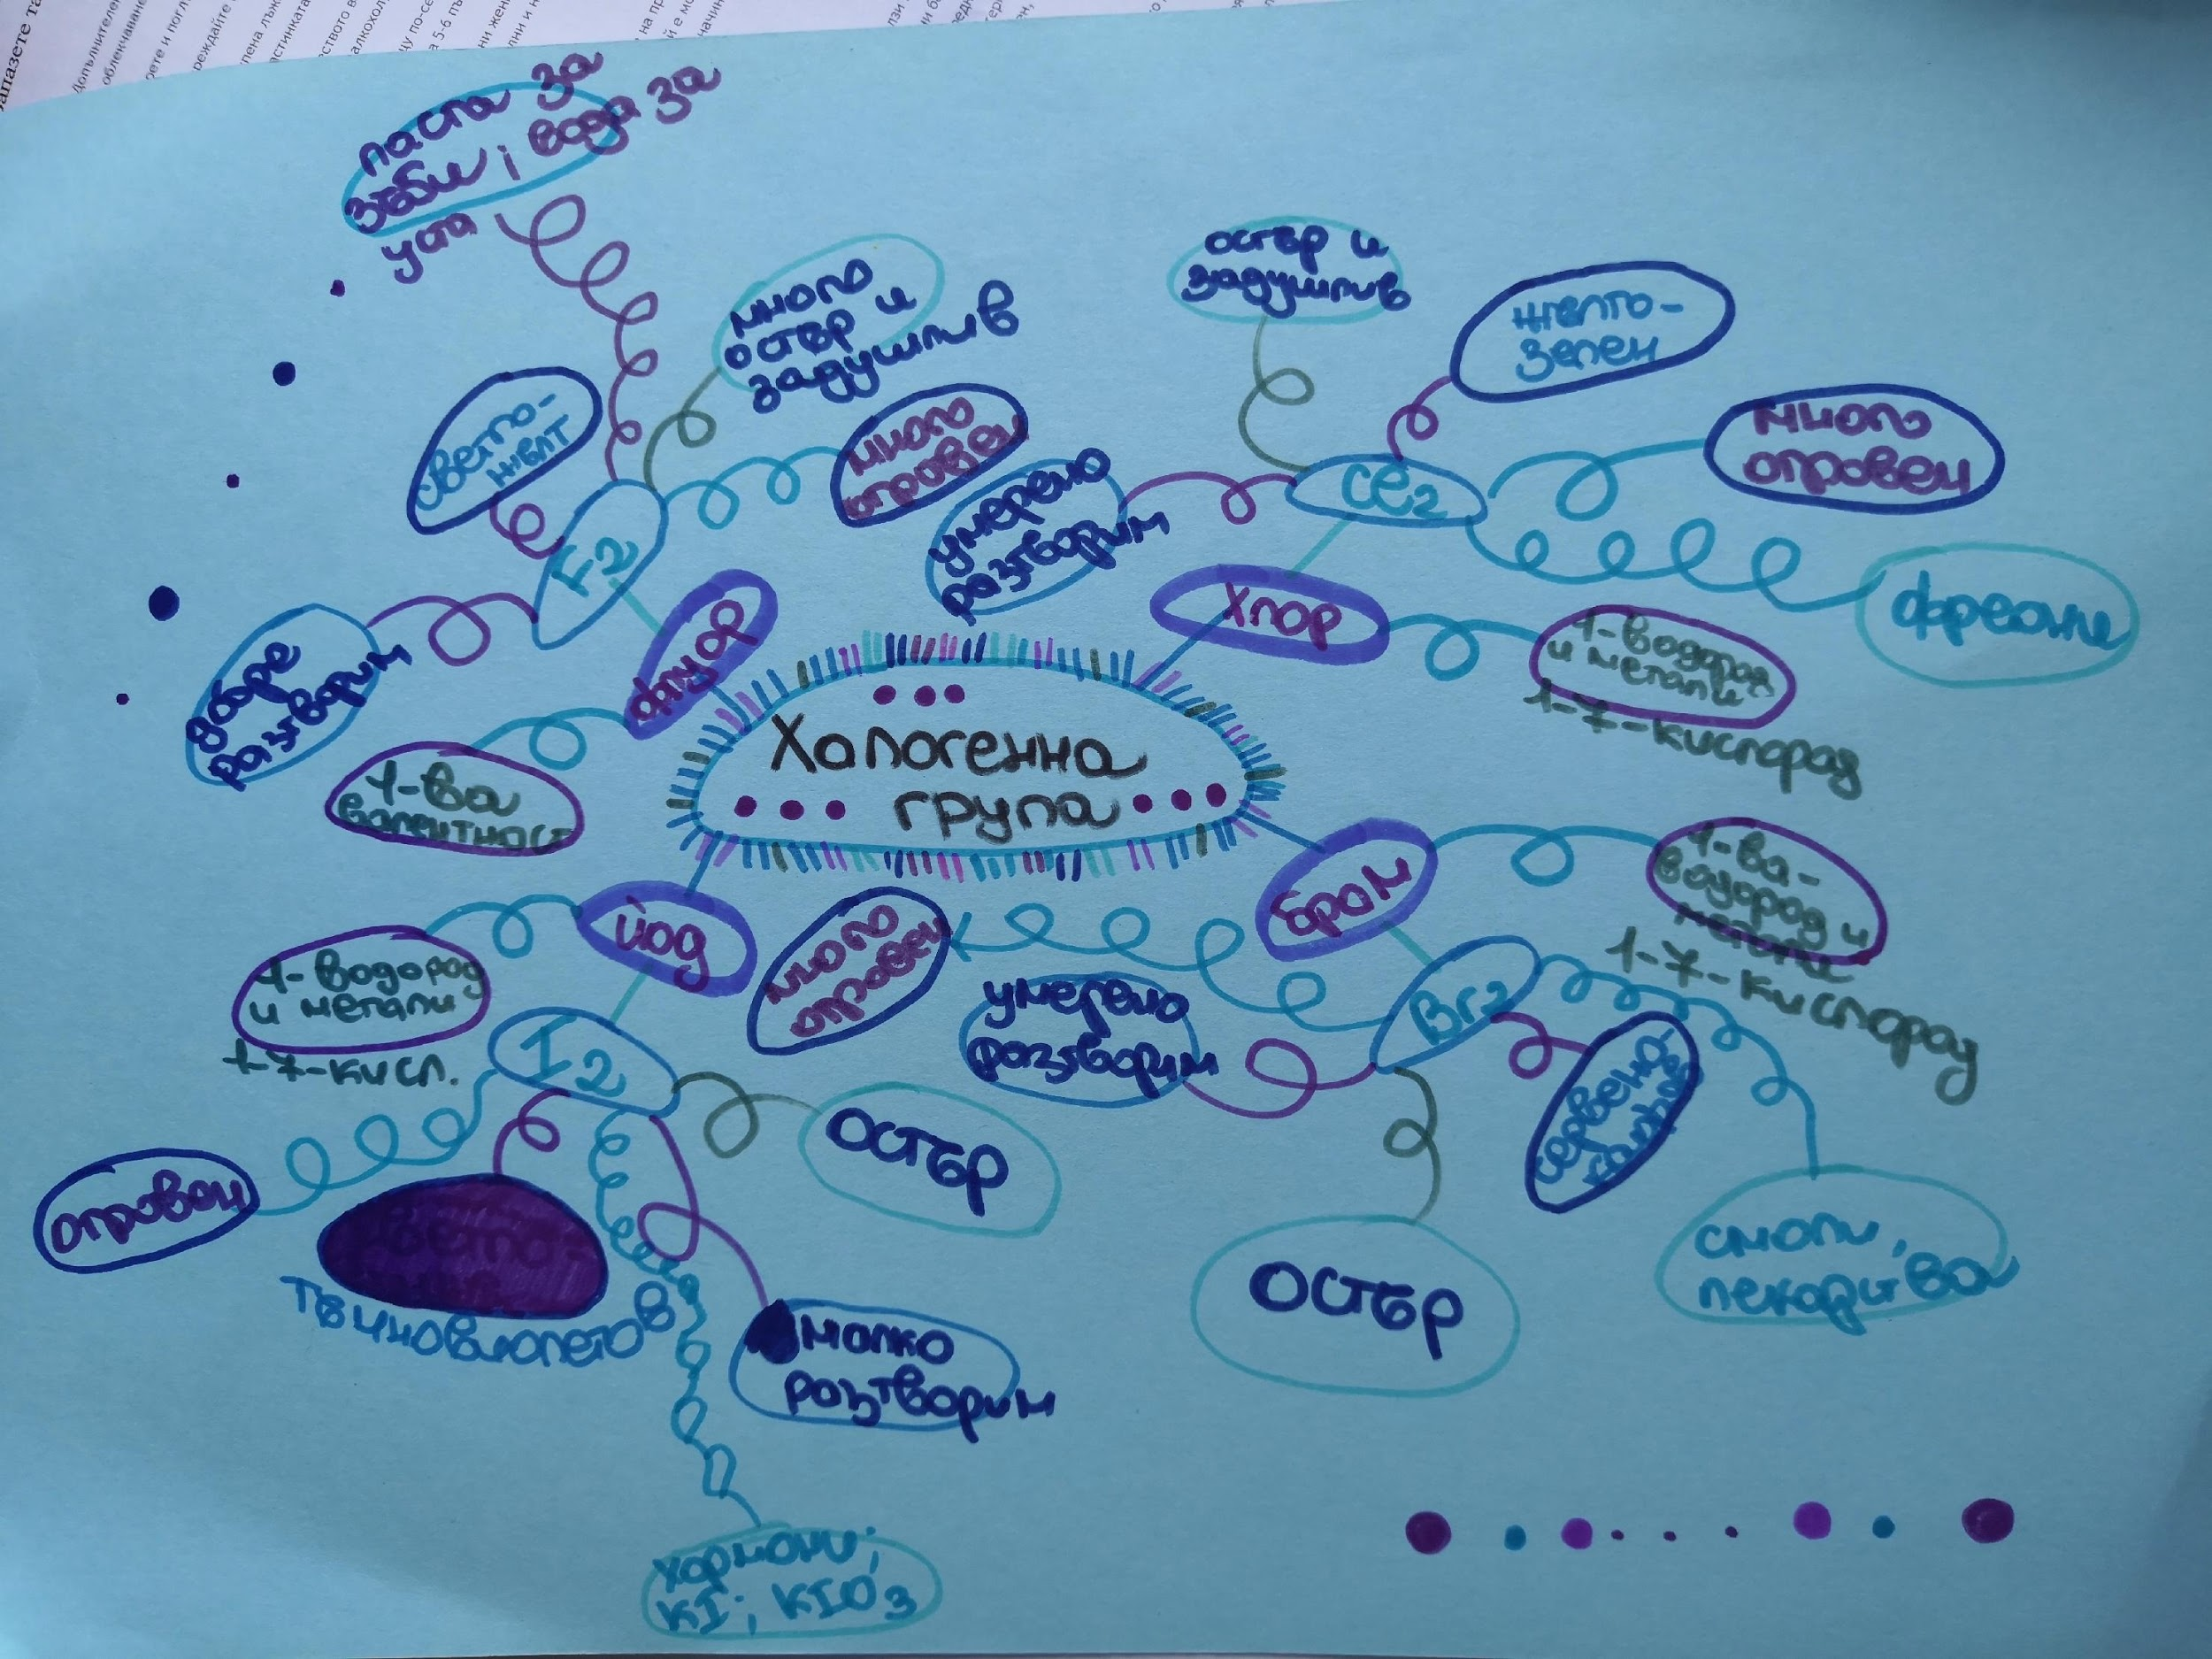 Халогенна
група
флуор
F2
паста за
зъби ; вода за
уста
много
остър и
задушлив
светло-
жълт
много
отровен
добре
разтворим
1-ва
валентност
хлор
Cl2
остър и
задушлив
жълто-
зелен
много
отровен
умерено
разтворим
фреони
1-водород
и метали
1-7-кислород
бром
Br2
1-ва-
водород и
метали
1-7-кислород
много
отровен
умерено
разтворим
червено-
остър
смоли,
лекарства
йод
I2
1-водород
и метали
1-7-кисл.
отровен
тъмновиолетов
остър
малко
разтворим
хормони;
KI; KIO3